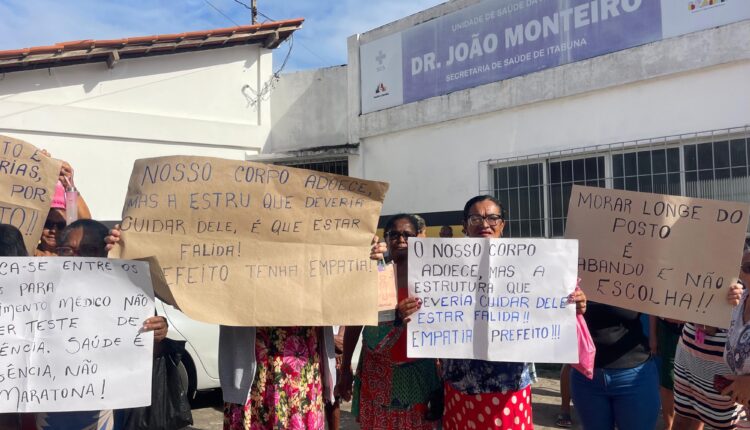 UNIDADE DE SAÚDE DA
DR. JOÃO MONTEIRO
SECRETARIA DE SAÚDE DE ITABUNA
TO E
RIAS,
POR
TO!!
NOSSO CORPO ADOECE,
MAS A ESTRU QUE DEVERIA
CUIDAR DELE, É QUE ESTAR
FALIDA!
EFEITO TENHA EMPATIA!
CA-SE ENTRE OS
S PARA
IMENTO MÉDICO NÃO
ER TESTE DE
ÊNCIA. SAÚDE É
SÊNCIA, NÃO
MARATONA!
NOSSO CORPO
ADOECE, MAS A
ESTRUTURA QUE
DEVERIA CUIDAR DELE
ESTAR FALIDA!!
EMPATIA PREFEITO!!!
MORAR LONGE DO
POSTO
É
ABANDO E NÃO
ESCOLHA!!